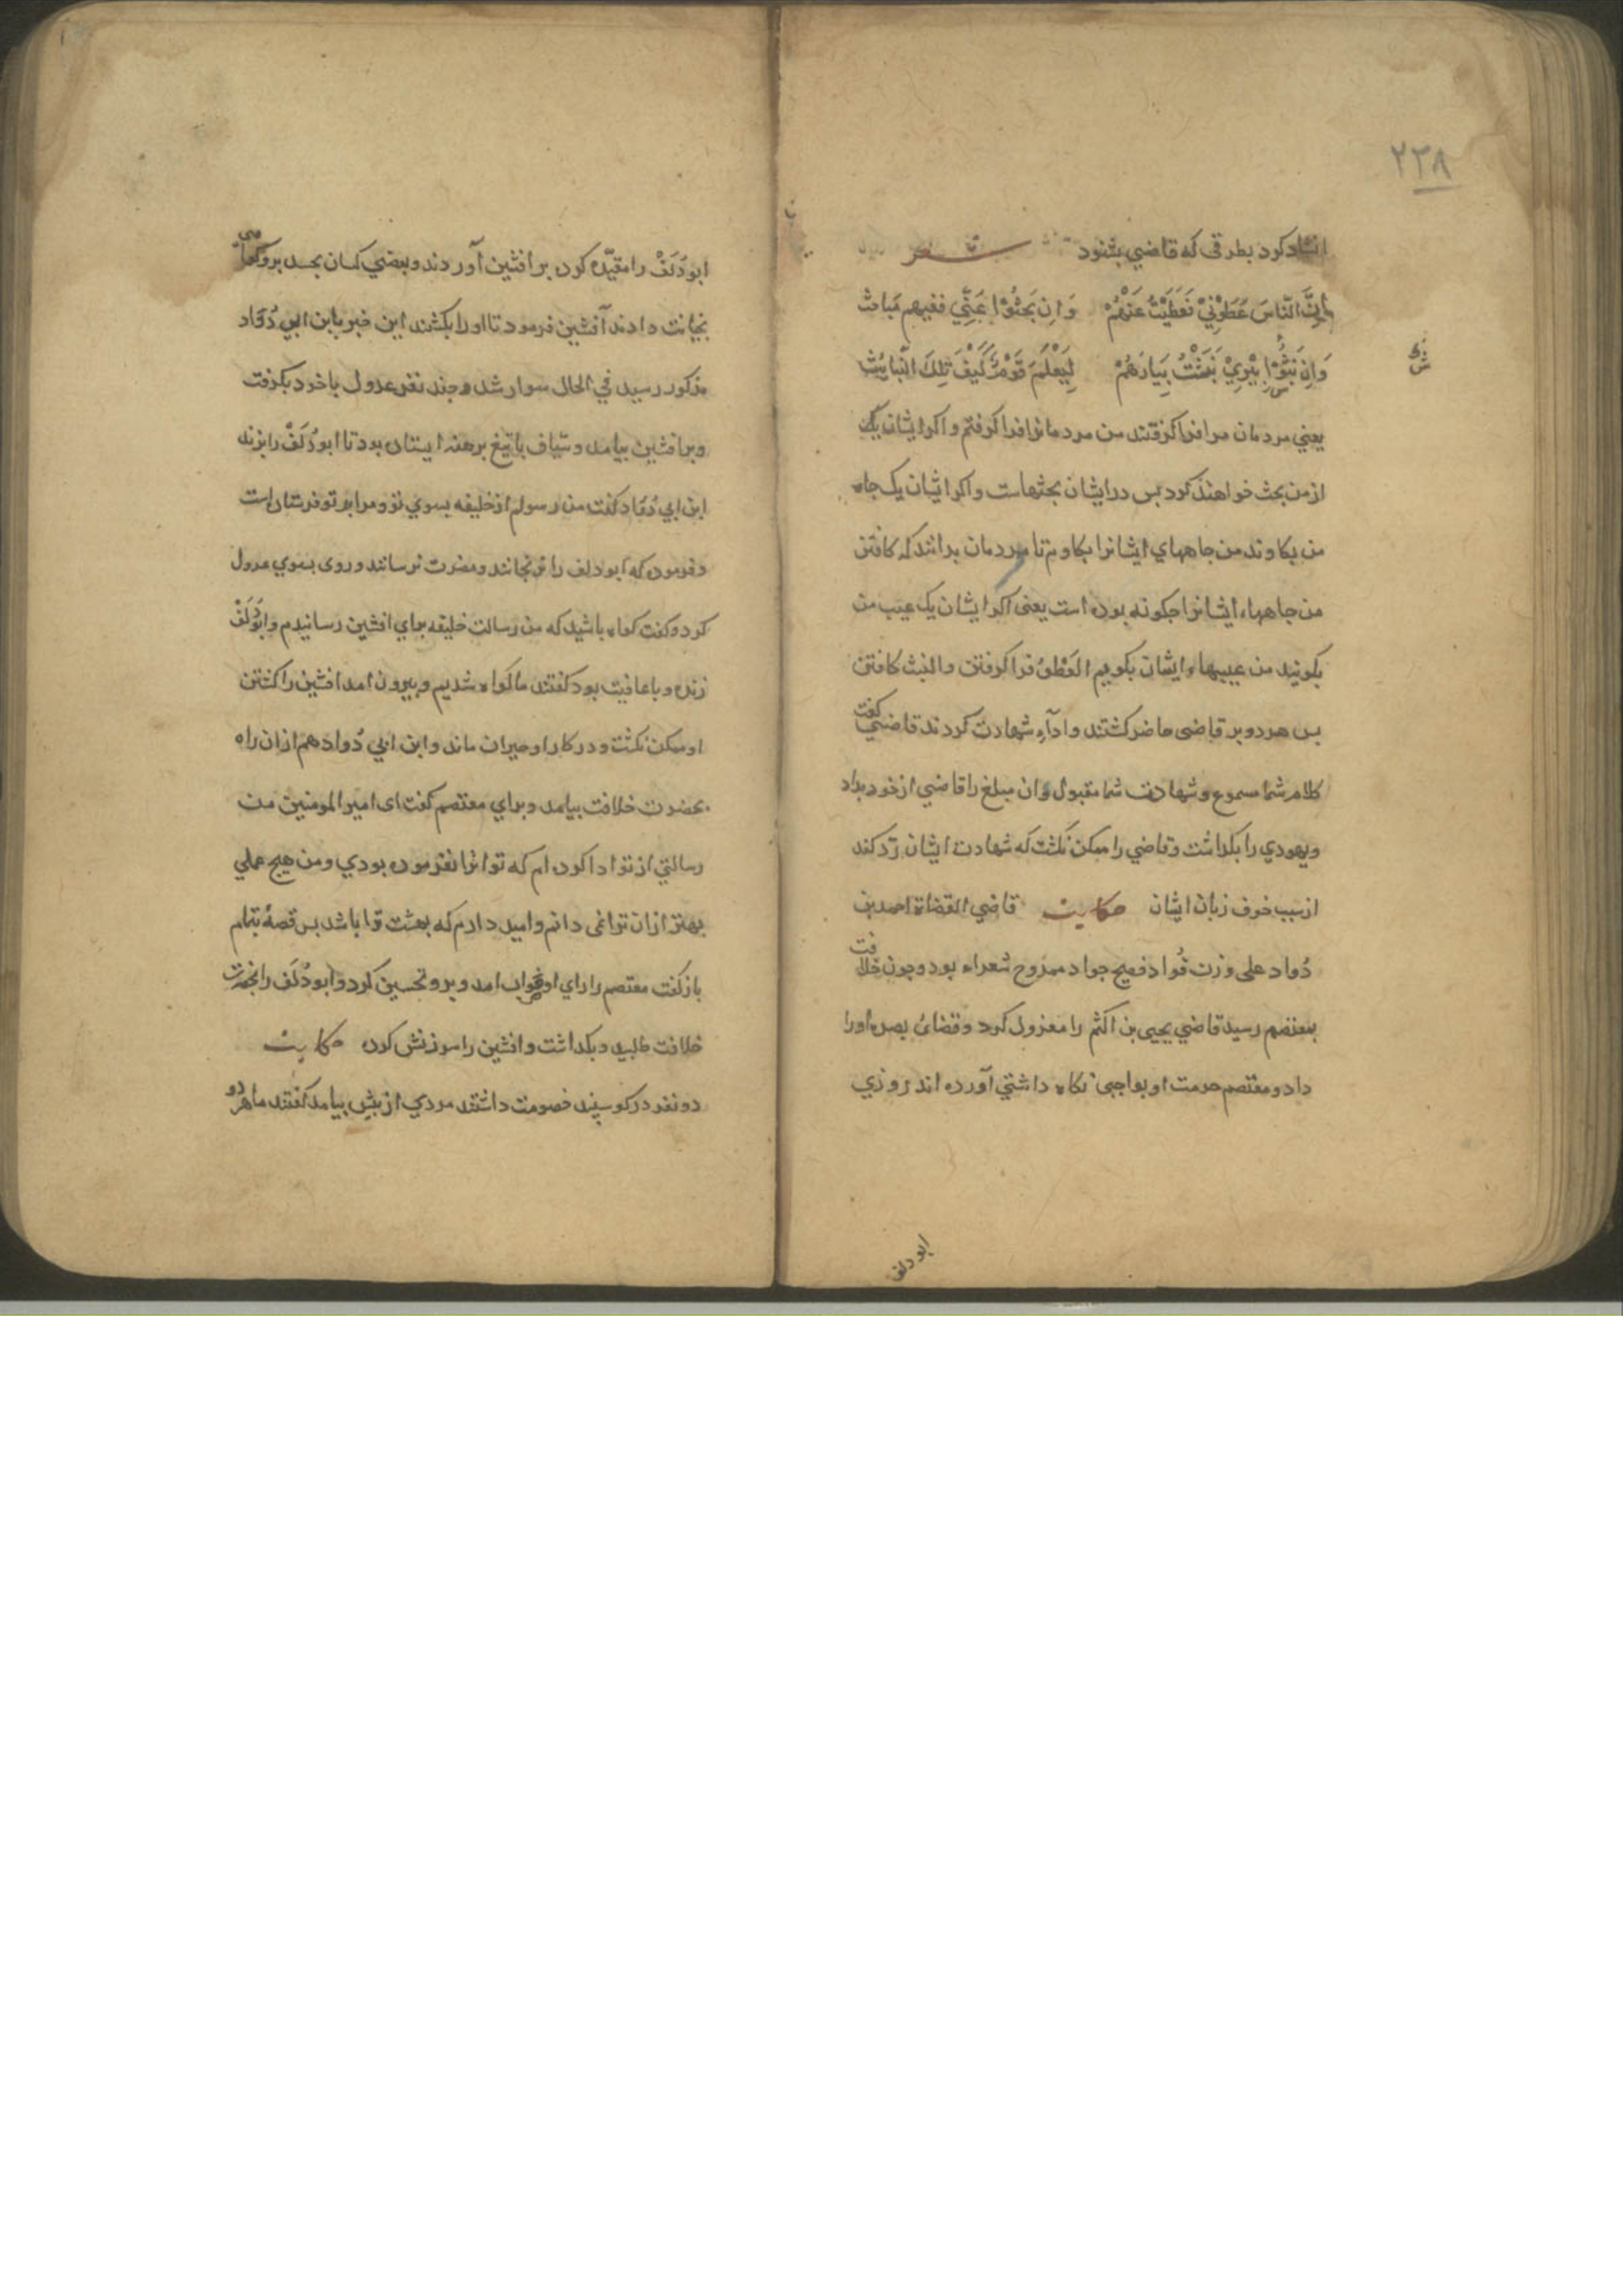 ۲۳۸
انشاد کرد بطرقی که قاضي بشنود شعر
إِنَّ النَّاسَ غَطَّوْنِيْ تَغَطَّيْتُ عَنْهُمْ وَاِن بَحَثُوْا عَنِّي ففيهم مَبَاحِثُ
وَاِن نَبَثُوْا بِيْرِيْ نَبَثْتُ بِيَارَهُمْ لِيَعْلَمَ قَوْمٌ كَيْفَ تِلكَ النَّبَائِثُ
يعني مردمان مرا فرا کرفتند من مردمانرا فرا کرفتم و اکر ایشان یک
از من بحث خواهند کرد بس در ایشان بحثهاست و اکر ایشان یک جاه
من بکاوند من جاههاي ایشانرا بکاوم تا مردمان بدانند که کافتن
من جاهها ایشانرا جکونه بوده است یعنی اکر ایشان یک عیب من
بکویند من عیبهاء ایشان بکویم الغطو فرا کرفتن و النبث کافتن
بس هر دو بر قاضی حاضر کشتند و ادآء شهادت کردند قاضي کفت
کلام شما مسموع و شهادت شما مقبول و ان مبلغ را قاضي از خود بداد
و یهودي را بکداشت و قاضي را ممکن نکشت که شهادت ایشان رد کند
از سبب خوف زبان ایشان حکایت قاضي القضاة احمد بن
دُواد علی وزن فُواد فصیح جواد ممدوح شعراء بود و جون خلافت
بمعتصم رسید قاضي یحیی بن اکثم را معزول کرد و قضائ بصره اورا
داد و معتصم حرمت او بواجبی نکاه داشتي آورده اند روزي
ابو دلف
ابودُلَفْ را مقیّد کرده بر افشین آوردند و بعضي کسان بحسد برو کواهی
بخیانت دادند آفشین فرمود تا اورا بکشند این خبر بابن ابي دُوَاد
مذکور رسید في الحال سوار شد و جند نفر عدول با خرد بکرفت
و بر افشین بیامد و سیاف با تیغ برهنه ایستاده بود تا ابودُلَفْ را بزند
ابن ابي دُوَاد کفت من رسولم از خلیفه بسوي تو و مرا بر تو فرستاده است
و فرموده که ابودلف را نرنجانند و مضرت نرسانند و روی بسوي عدول
کرد و کفت کواه باشید که من رسالت خلیفه بجاي افشین رسانیدم و ابودُلَفْ
زنده و با عافیت بود کفتند ما کواه شدیم و بیرون امد افشین را کشتن
او ممکن نکشت و در کار او حیران ماند و ابن ابي دُواد هم از ان راه
بحضرت خلافت بیامد و براي معتصم کفت ای امیر المومنین من
رسالتي از تو ادا کرده ام که تو انرا نفرموده بودي و من هیج عملي
بهتر از ان نمی دانم و امید دارم که بهشت ترا باشد بس قصهٔ بتمام
باز کفت معتصم را راي او صواب امد و برو تحسین کرد و ابودُلَف را بحضرت
خلافت طلبید و بکداشت و افشین را سرزنش کرد حکایت
دو نفر در کوسبند خصومت داشتند مردي از بیش بیامد کفتند ما هر دو